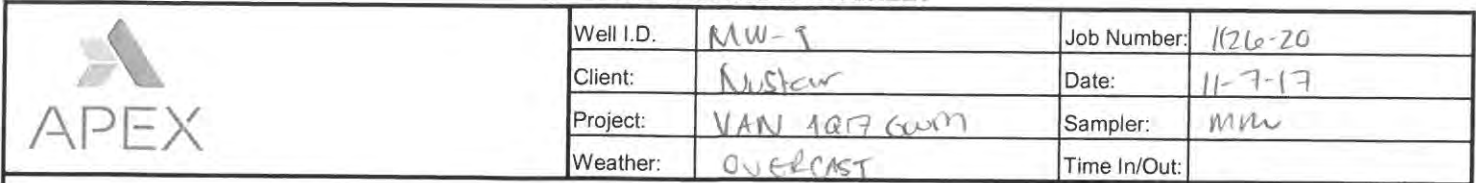 APEX
Well I.D. MW-9 Job Number: 1126-20
Client: Nustar Date: 11-7-17
Project: VAN 4Q17 GWM Sampler:
Weather: OVERCAST Time In/Out: